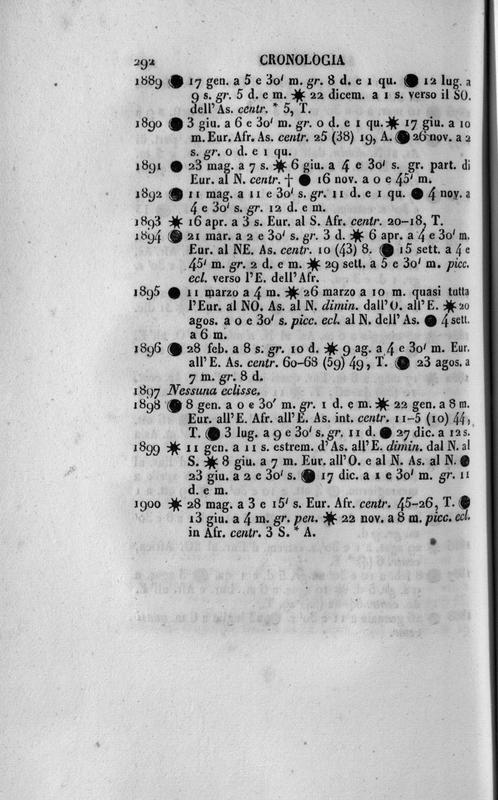 292 CRONOLOGIA
1889 ● 17 gen. a 5 e 30' m. gr. 8 d. e 1 qu. ● 12 lug. a
9 s. gr. 5 d. e m. ✴ 22 dicem. a 1 s. verso il SO.
dell'As. centr. * 5, T.
1890 ● 3 giu. a 6 e 30' m. gr. 0 d. e 1 qu. ✴ 17 giu. a 10
m. Eur. Afr. As. centr. 25 (38) 19, A. ● 26 nov. a 2
s. gr. 0 d. e 1 qu.
1891 ● 23 mag. a 7 s. ✴ 6 giu. a 4 e 30' s. gr. part. di
Eur. al N. centr. † ● 16 nov. a 0 e 45' m.
1892 ● 11 mag. a 11 e 30' s. gr. 11 d. e 1 qu. ● 4 nov. a
4 e 30' s. gr. 12 d. e m.
1893 ✴ 16 apr. a 3 s. Eur. al S. Afr. centr. 20-18, T.
1894 ● 21 mar. a 2 e 30' s. gr. 3 d. ✴ 6 apr. a 4 e 30' m.
Eur. al NE. As. centr. 10 (43) 8. ● 15 sett. a 4 e
45' m. gr. 2 d. e m. ✴ 29 sett. a 5 e 30' m. picc.
ecl. verso l'E. dell'Afr.
1895 ● 11 marzo a 4 m. ✴ 26 marzo a 10 m. quasi tutta
l'Eur. al NO. As. al N. dimin. dall'O. all'E. ✴ 20
agos. a 0 e 30' s. picc. ecl. al N. dell'As. ● 4 sett.
a 6 m.
1896 ● 28 feb. a 8 s. gr. 10 d. ✴ 9 ag. a 4 e 30' m. Eur.
all'E. As. centr. 60-68 (59) 49, T. ● 23 agos. a
7 m. gr. 8 d.
1897 Nessuna eclisse.
1898 ● 8 gen. a 0 e 30' m. gr. 1 d. e m. ✴ 22 gen. a 8 m.
Eur. all'E. Afr. all'E. As. int. centr. 11-5 (10) 44,
T. ● 3 lug. a 9 e 30' s. gr. 11 d. ● 27 dic. a 12 s.
1899 ✴ 11 gen. a 11 s. estrem. d'As. all'E. dimin. dal N. al
S. ✴ 8 giu. a 7 m. Eur. all'O. e al N. As. al N. ●
23 giu. a 2 e 30' s. ● 17 dic. a 1 e 30' m. gr. 11
d. e m.
1900 ✴ 28 mag. a 3 e 15' s. Eur. Afr. centr. 45-26, T. ●
13 giu. a 4 m. gr. pen. ✴ 22 nov. a 8 m. picc. ecl.
in Afr. centr. 3 S. * A.